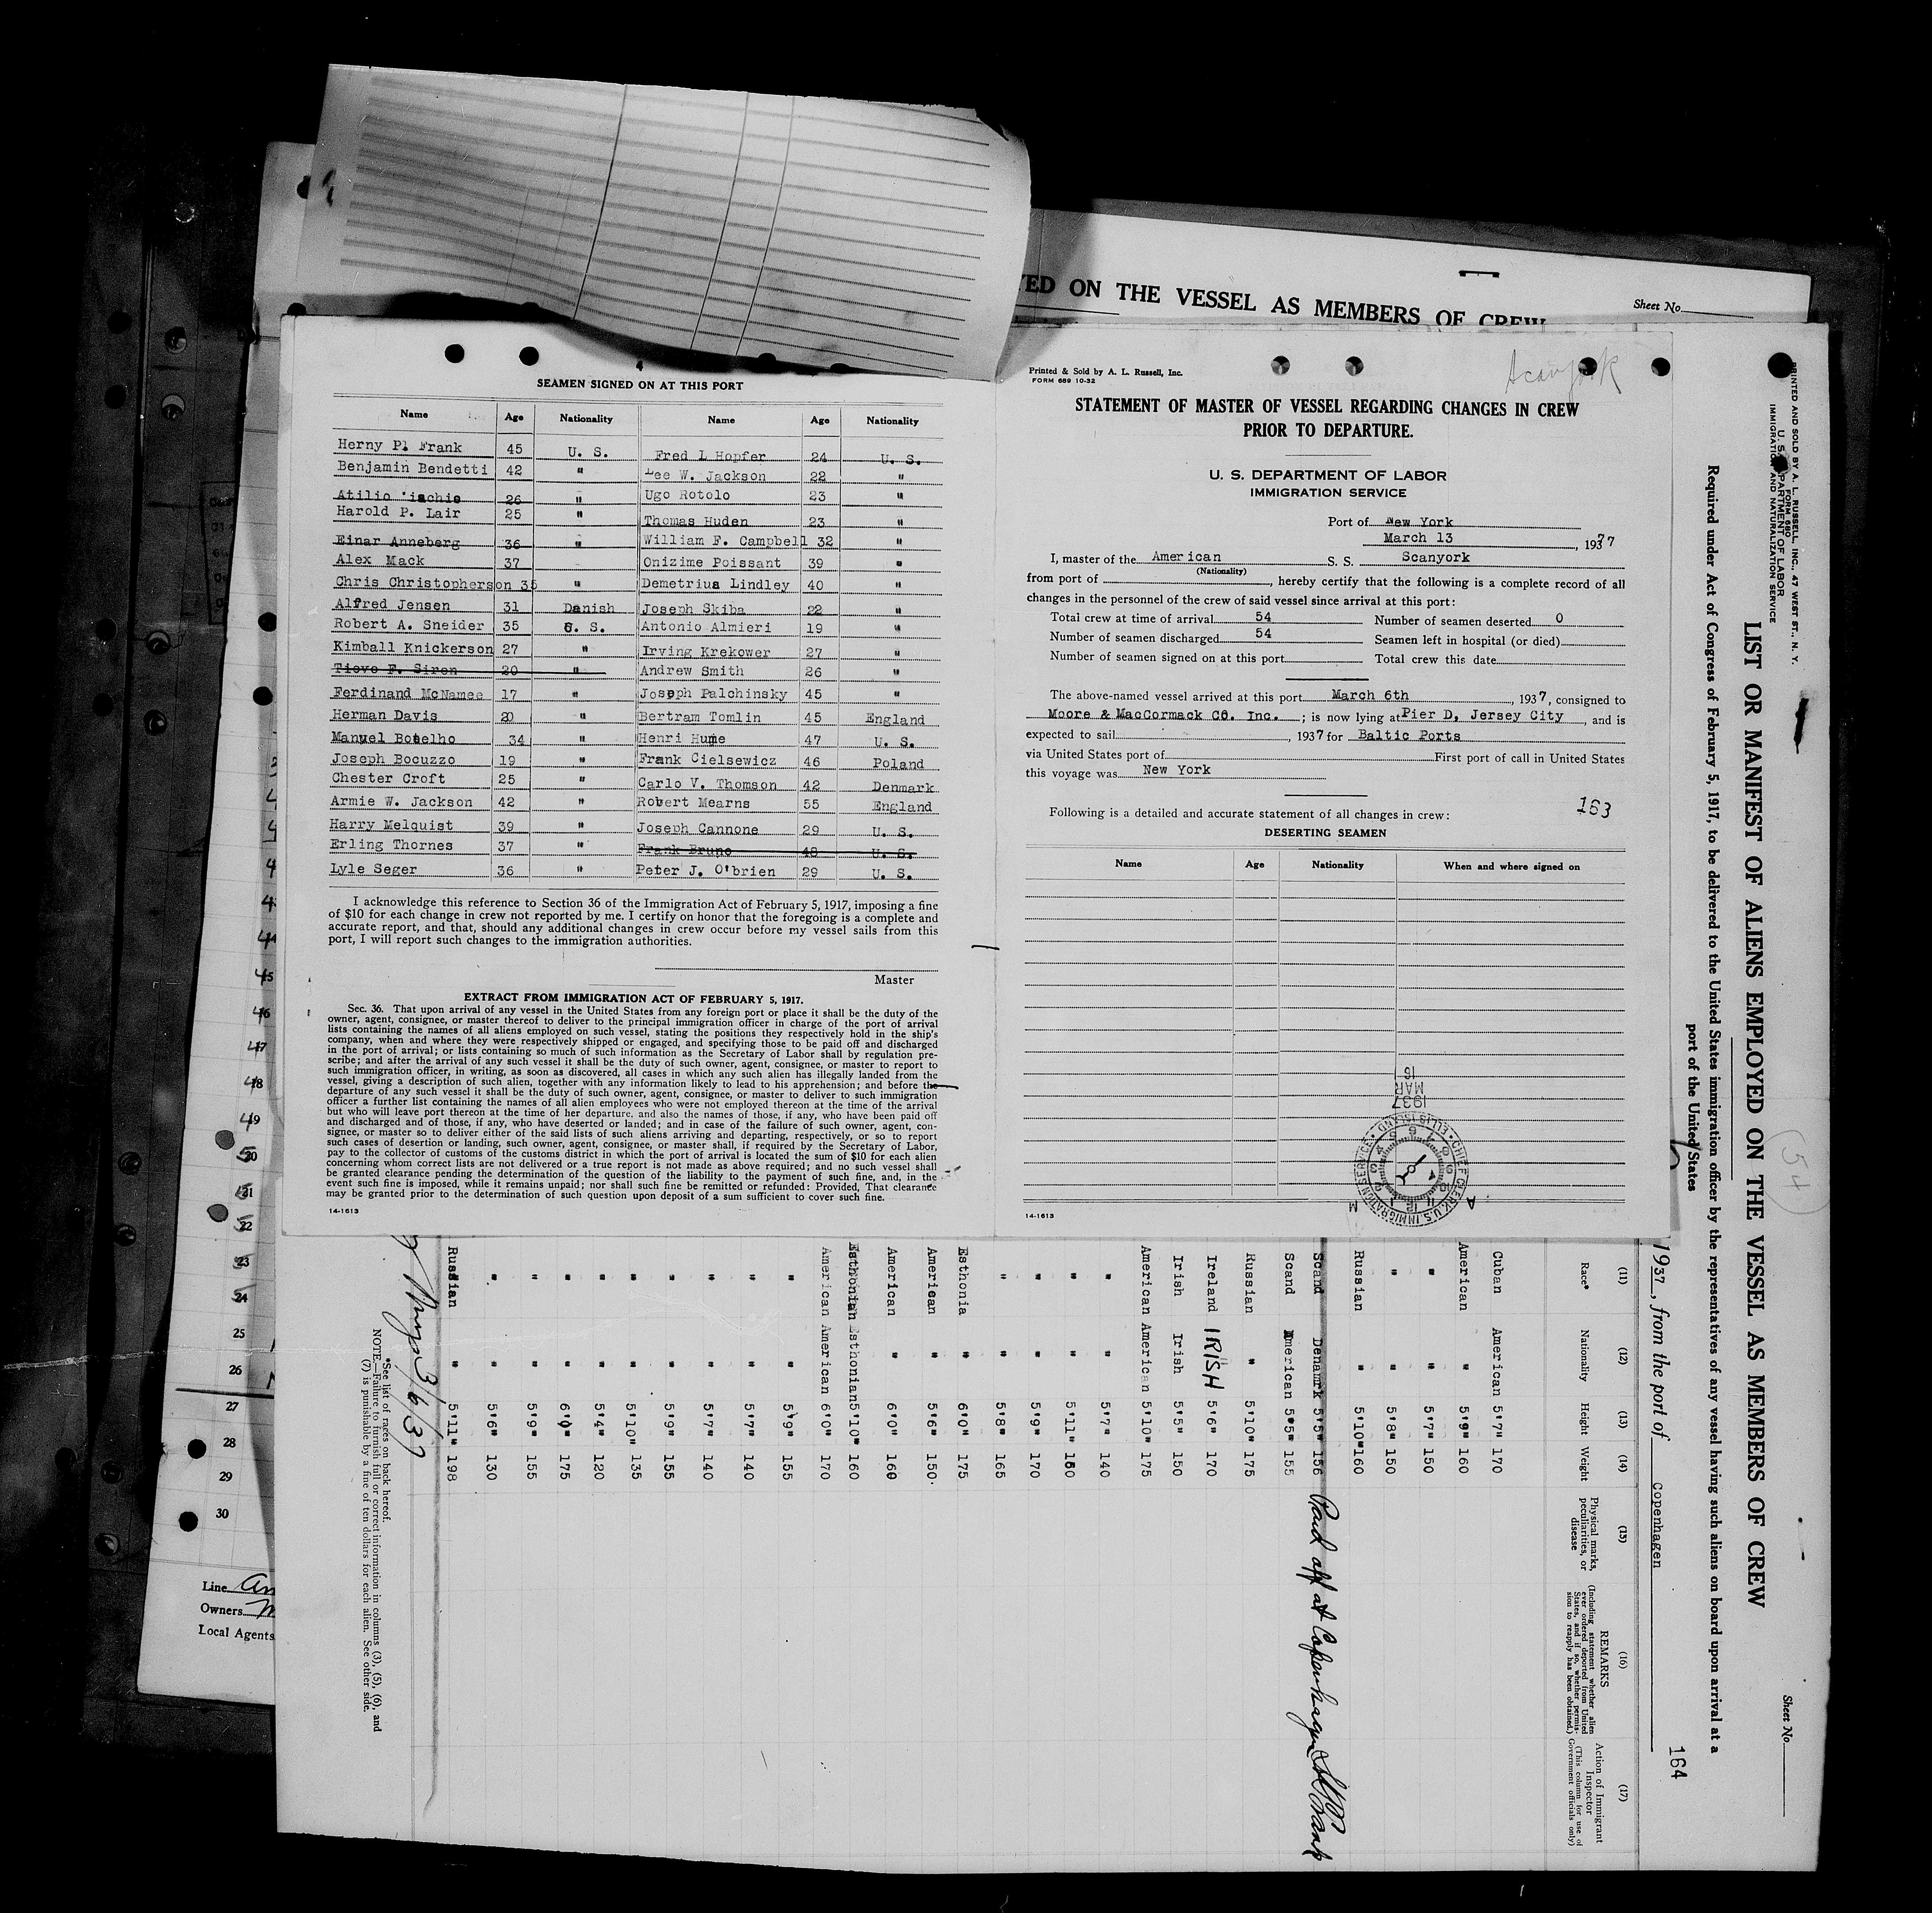 YED ON THE VESSEL AS MEMBERS OF CREW
Sheet No.
4
SEAMEN SIGNED ON AT THIS PORT
Name Age Nationality Name Age Nationality
Herny P. Frank 45 U. S. Fred L Hopfer 24 U. S.
Benjamin Bendetti 42 " Lee W. Jackson 22 "
Atilio 26 " Ugo Rotolo 23 "
Harold P. Lair 25 " Thomas Huden 23 "
Einar Anneberg 36 " William F. Campbell 32 "
Alex Mack 37 Onizime Poissant 39 "
Chris Christopherson 35 " Demetrius Lindley 40 "
Alfred Jensen 31 Danish Joseph Skiba 22 "
Robert A. Sneider 35 U. S. Antonio Almieri 19 "
Kimball Knickerson 27 " Irving Krekower 27 "
Tievo F. Siren 20 " Andrew Smith 26 "
Ferdinand McNamee 17 " Joseph Palchinsky 45 "
Herman Davis 20 " Bertram Tomlin 45 England
Manuel Botelho 34 " Henri Hume 47 U. S.
Joseph Bocuzzo 19 " Frank Cielsewicz 46 Poland
Chester Croft 25 " Carlo V. Thomson 42 Denmark
Armie W. Jackson 42 " Robert Mearns 55 England
Harry Melquist 39 " Joseph Cannone 29 U. S.
Erling Thornes 37 " Frank Bruno 48 U. S.
Lyle Seger 36 " Peter J. O'brien 29 U. S.
I acknowledge this reference to Section 36 of the Immigration Act of February 5, 1917, imposing a fine
of $10 for each change in crew not reported by me. I certify on honor that the foregoing is a complete and
accurate report, and that, should any additional changes in crew occur before my vessel sails from this
port, I will report such changes to the immigration authorities.
Master
EXTRACT FROM IMMIGRATION ACT OF FEBRUARY 5, 1917.
Sec. 36. That upon arrival of any vessel in the United States from any foreign port or place it shall be the duty of the
owner, agent, consignee, or master thereof to deliver to the principal immigration officer in charge of the port of arrival
lists containing the names of all aliens employed on such vessel, stating the positions they respectively hold in the ship's
company, when and where they were respectively shipped or engaged, and specifying those to be paid off and discharged
in the port of arrival; or lists containing so much of such information as the Secretary of Labor shall by regulation pre-
scribe; and after the arrival of any such vessel it shall be the duty of such owner, agent, consignee, or master to report to
such immigration officer, in writing, as soon as discovered, all cases in which any such alien has illegally landed from the
vessel, giving a description of such alien, together with any information likely to lead to his apprehension; and before the
departure of any such vessel it shall be the duty of such owner, agent, consignee, or master to deliver to such immigration
officer a further list containing the names of all alien employees who were not employed thereon at the time of the arrival
but who will leave port thereon at the time of her departure, and also the names of those, if any, who have been paid off
and discharged and of those, if any, who have deserted or landed; and in case of the failure of such owner, agent, con-
signee, or master so to deliver either of the said lists of such aliens arriving and departing, respectively, or so to report
such cases of desertion or landing, such owner, agent, consignee, or master shall, if required by the Secretary of Labor,
pay to the collector of customs of the customs district in which the port of arrival is located the sum of $10 for each alien
concerning whom correct lists are not delivered or a true report is not made as above required; and no such vessel shall
be granted clearance pending the determination of the question of the liability to the payment of such fine, and, in the
event such fine is imposed, while it remains unpaid; nor shall such fine be remitted or refunded: Provided, That clearance
may be granted prior to the determination of such question upon deposit of a sum sufficient to cover such fine.
14-1613
Printed & Sold by A. L. Russell, Inc.
FORM 689 10-32
Scanyork
STATEMENT OF MASTER OF VESSEL REGARDING CHANGES IN CREW
PRIOR TO DEPARTURE.
U. S. DEPARTMENT OF LABOR
IMMIGRATION SERVICE
Port of New York
March 13, 1937
I, master of the American S. S. Scanyork
(Nationality)
from port of , hereby certify that the following is a complete record of all
changes in the personnel of the crew of said vessel since arrival at this port:
Total crew at time of arrival 54 Number of seamen deserted 0
Number of seamen discharged 54 Seamen left in hospital (or died)
Number of seamen signed on at this port Total crew this date
The above-named vessel arrived at this port March 6th, 1937, consigned to
Moore & MacCormack CO. Inc. ; is now lying at Pier D, Jersey City, and is
expected to sail , 1937 for Baltic Ports
via United States port of First port of call in United States
this voyage was New York
163
Following is a detailed and accurate statement of all changes in crew:
DESERTING SEAMEN
Name Age Nationality When and where signed on
1937
MAR
16
CHIEF CLERK U.S. IMMIGRATION SERVICE ELLIS ISLAND
14-1613
PRINTED AND SOLD BY A. L. RUSSELL, INC., 47 WEST ST., N. Y.
FORM 680
U. S. DEPARTMENT OF LABOR
IMMIGRATION AND NATURALIZATION SERVICE
Sheet No.
LIST OR MANIFEST OF ALIENS EMPLOYED ON THE VESSEL AS MEMBERS OF CREW
54
Required under Act of Congress of February 5, 1917, to be delivered to the United States immigration officer by the representatives of any vessel having such aliens on board upon arrival at a
port of the United States
164
1937, from the port of Copenhagen
(11) (12) (13) (14) (15) (16) (17)
Race* Nationality Height Weight Physical marks, peculiarities, or disease REMARKS (Including statement whether alien ever ordered deported from United States, and if so, whether permission to reapply has been obtained.) Action of Immigrant Inspector (This column for use of Government officials only)
Cuban American 5'7" 170
American " 5'9" 160
" " 5'7" 150
" " 5'8" 150
Russian " 5'10" 160
Scand Denamrk 5'5" 156 Paid off at Copenhagen
Scand American 5'5" 155
Russian " 5'10" 175
Ireland IRISH 5'6" 170
Irish Irish 5'5" 150
American American 5'10" 175
" " 5'7" 140
" " 5'11" 160
" " 5'9" 170
" " 5'8" 165
Esthonia " 6'0" 175
American " 5'6" 150.
American " 6'0" 160
Esthonian Esthonian 5'10" 160
American American 6'0" 170
" " 5'9" 155
" " 5'7" 140
" " 5'7" 140
" " 5'9" 155
" " 5'10" 135
" " 5'4" 120
" " 6'0" 175
" " 5'9" 155
" " 5'6" 130
Russian " 5'11" 198
3/6/37
*See list of races on back hereof.
NOTE.—Failure to furnish full or correct information in columns (3), (5), (6), and
(7) is punishable by a fine of ten dollars for each alien. See other side.
45
46
47
48
49
50
51
52
53
54
25
26
27
28
29
30
Line
Owners
Local Agents